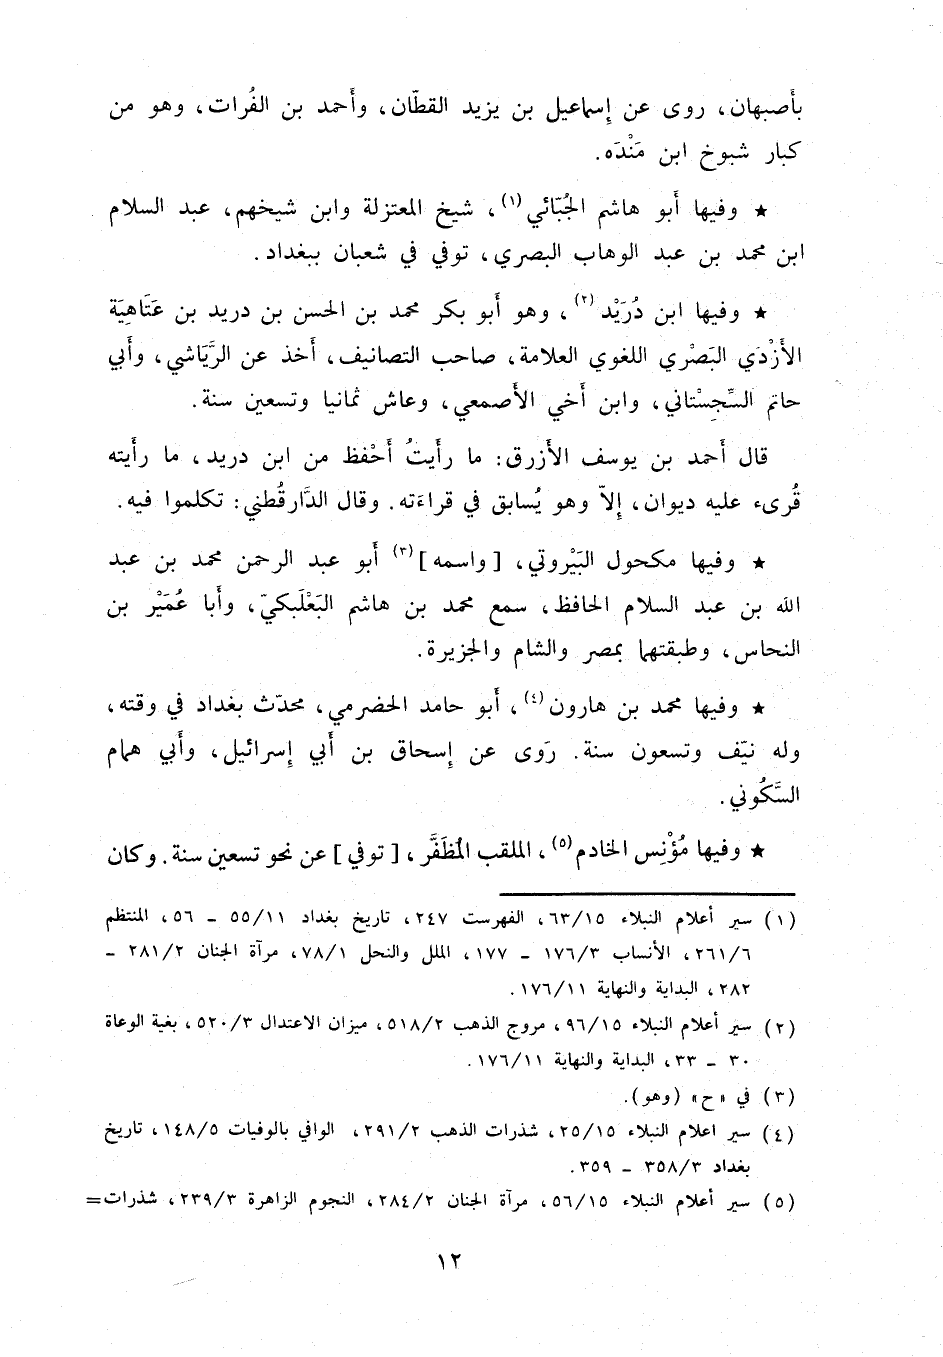 بأصبهان، روى عن إسماعيل بن يزيد القطّان، وأحمد بن الفُرات، وهو من
كبار شيوخ ابن مَنْدَه.
★ وفيها أبو هاشم الجُبّائي(١)، شيخ المعتزلة وابن شيخهم، عبد السلام
ابن محمد بن عبد الوهاب البصري، توفي في شعبان ببغداد.
★ وفيها ابن دُرَيْد(٢)، وهو أبو بكر محمد بن الحسن بن دريد بن عَتَاهِيَة
الأَزْدَي البَصْري اللغوي العلامة، صاحب التصانيف، أخذ عن الرَّيَاشي، وأبي
حاتم السِّجِسْتاني، وابن أخي الأصمعي، وعاش ثمانيا وتسعين سنة.
قال أحمد بن يوسف الأزرق: ما رأيتُ أحْفظ من ابن دريد، ما رأيته
قُرىء عليه ديوان، إلاّ وهو يُسابق في قراءَته. وقال الدَّارقُطني: تكلموا فيه.
★ وفيها مكحول البَيْروتي، [واسمه](٣) أبو عبد الرحمن محمد بن عبد
الله بن عبد السلام الحافظ، سمع محمد بن هاشم البَعْلَبكيّ، وأبا عُمَيْر بن
النحاس، وطبقتهما بمصر والشام والجزيرة.
★ وفيها محمد بن هارون(٤)، أبو حامد الحضرمي، محدّث بغداد في وقته،
وله نيّف وتسعون سنة. رَوى عن إسحاق بن أبي إسرائيل، وأبي همام
السَّكُوني.
★ وفيها مُؤْنِس الخادم(٥)، الملقب المُظَفَّر، [توفي] عن نحو تسعين سنة. وكان
(١) سير أعلام النبلاء ٦٣/١٥، الفهرست ٢٤٧، تاريخ بغداد ٥٥/١١ - ٥٦، المنتظم
٢٦١/٦، الأنساب ١٧٦/٣ - ١٧٧، الملل والنحل ٧٨/١، مرآة الجنان ٢٨١/٢ -
٢٨٢، البداية والنهاية ١٧٦/١١.
(٢) سير أعلام النبلاء ٩٦/١٥، مروج الذهب ٥١٨/٢، ميزان الاعتدال ٥٢٠/٣، بغية الوعاة
٣٠ - ٣٣، البداية والنهاية ١٧٦/١١.
(٣) في «ح» (وهو).
(٤) سير اعلام النبلاء ٢٥/١٥، شذرات الذهب ٢٩١/٢، الوافي بالوفيات ١٤٨/٥، تاريخ
بغداد ٣٥٨/٣ - ٣٥٩.
(٥) سير أعلام النبلاء ٥٦/١٥، مرآة الجنان ٢٨٤/٢، النجوم الزاهرة ٢٣٩/٣، شذرات=
١٢